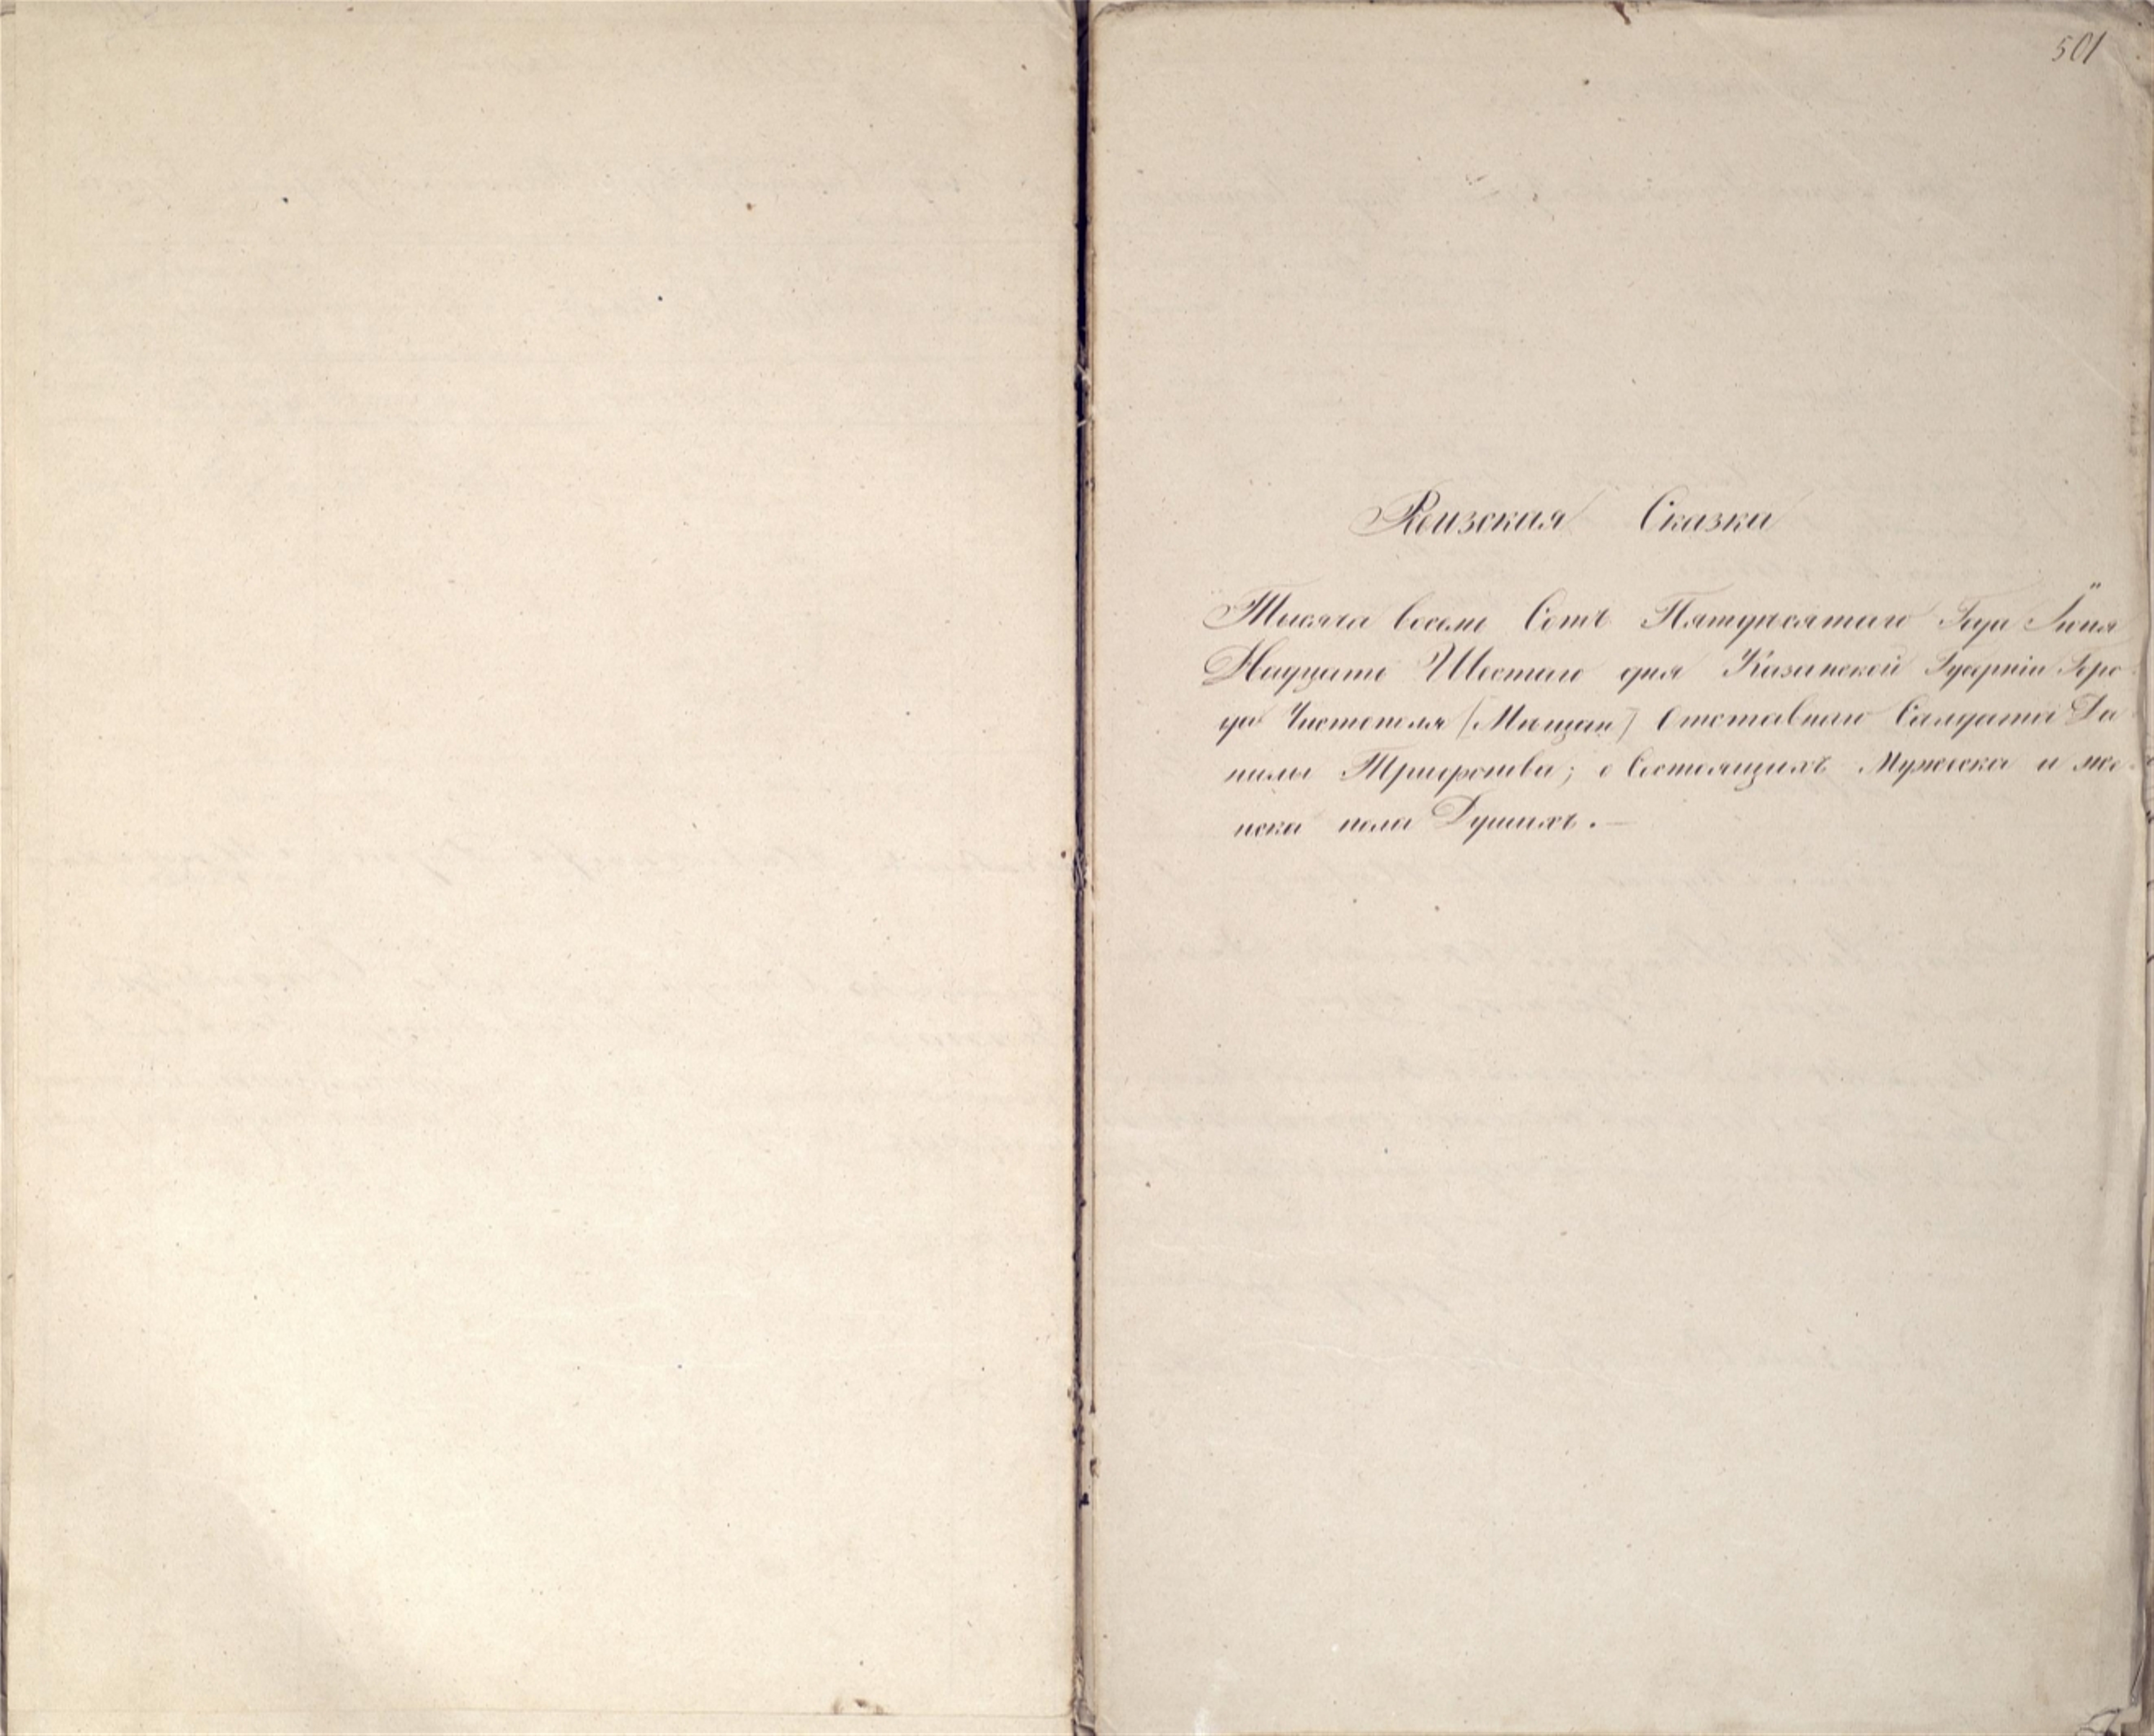 501
Ревизская Сказка
Тысяча восемь Сотъ Пятдесятаго Года Іюня
Надцать Шестаго дня Казанской Губерніи Горо-
да Чистополя [Мещан] Отставнаго Салдата Да
нилы Трифонова; о Состоящихъ Мужеска и же-
нска пола Душахъ.—